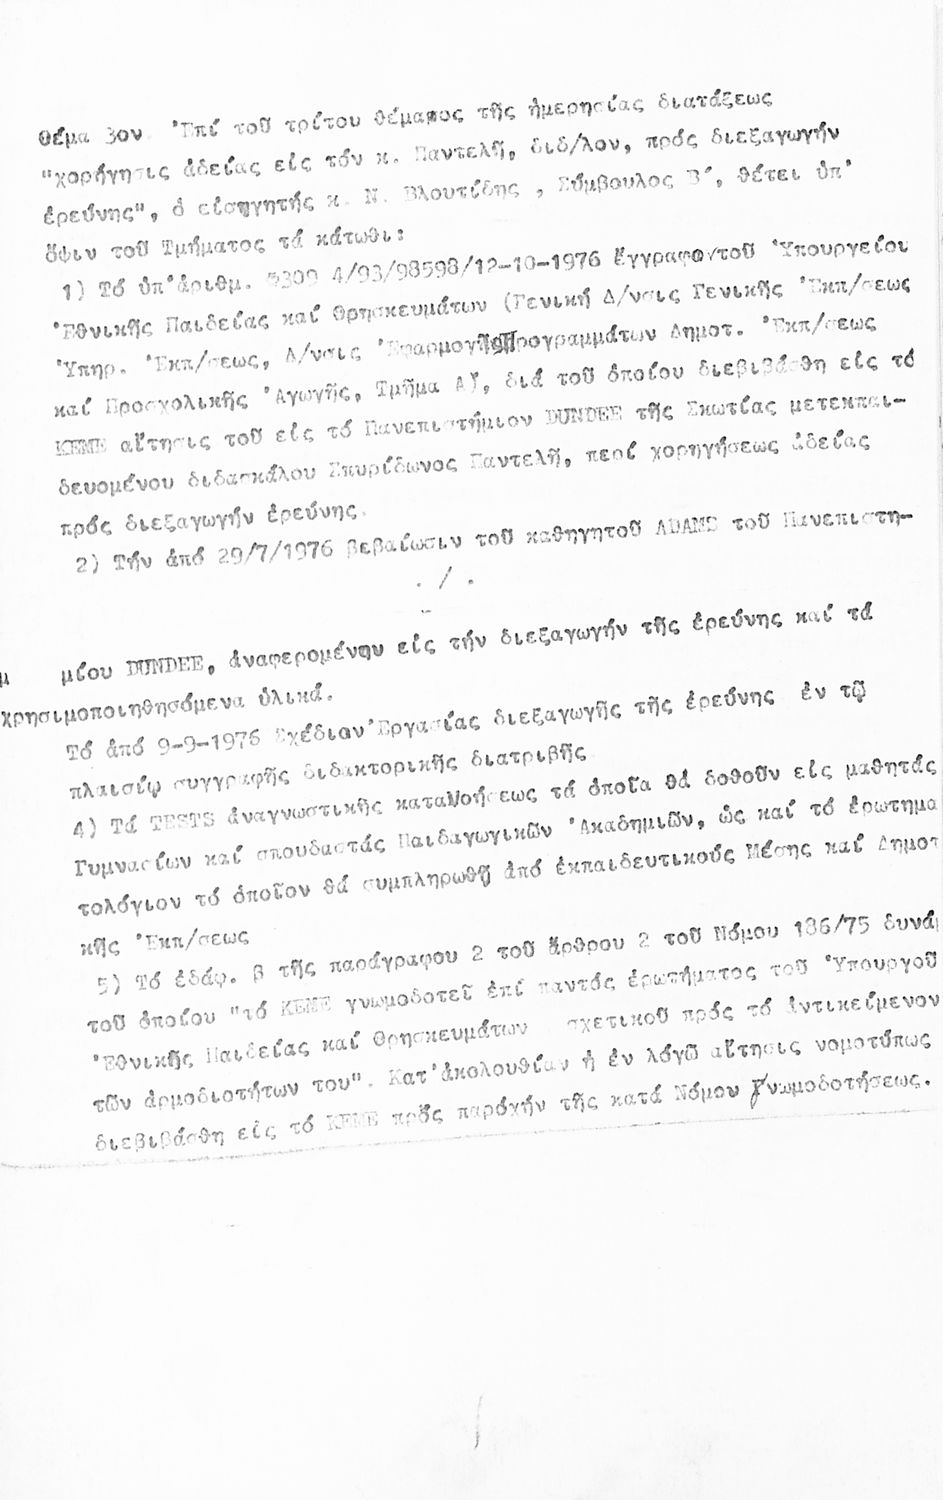 Θέμα 3ον. Ἐπί τοῦ τρίτου θέματος τῆς ἡμερησίας διατάξεως
"χορήγησις ἀδείας εἰς τόν κ. Παντελῆ, διδ/λον, πρός διεξαγωγήν
ἐρεύνης", ὁ εἰσηγητής κ. Ν. Βλουτίδης , Σύμβουλος Β΄, θέτει ὑπ'
ὄψιν τοῦ Τμήματος τά κάτωθι:
1) Τό ὑπ'ἀριθμ. 3309 4/93/98598/12-10-1976 ἔγγραφον τοῦ Ὑπουργείου
Ἐθνικῆς Παιδείας καί Θρησκευμάτων (Γενική Δ/νσις Γενικῆς Ἐκπ/σεως
Ὑπηρ. Ἐκπ/σεως, Δ/νσις Ἐφαρμογῆς Προγραμμάτων Δημοτ. Ἐκπ/σεως
καί Προσχολικῆς Ἀγωγῆς, Τμῆμα Α), διά τοῦ ὁποίου διεβιβάσθη εἰς τό
ΚΕΜΕ αἴτησις τοῦ εἰς τό Πανεπιστήμιον DUNDEE τῆς Σκωτίας μετεκπαι-
δευομένου διδασκάλου Σπυρίδωνος Παντελῆ, περί χορηγήσεως ἀδείας
πρός διεξαγωγήν ἐρεύνης.
2) Τήν ἀπό 29/7/1976 βεβαίωσιν τοῦ καθηγητοῦ ADAMS τοῦ Πανεπιστη-
. / .
μίου DUNDEE, ἀναφερομένην εἰς τήν διεξαγωγήν τῆς ἐρεύνης καί τά
χρησιμοποιηθησόμενα ὑλικά.
Τό ἀπό 9-9-1976 Σχέδιον Ἐργασίας διεξαγωγῆς τῆς ἐρεύνης ἐν τῷ
πλαισίῳ συγγραφῆς διδακτορικῆς διατριβῆς
4) Τά TESTS ἀναγνωστικῆς κατανοήσεως τά ὁποῖα θά δοθοῦν εἰς μαθητάς
Γυμνασίων καί σπουδαστάς Παιδαγωγικῶν Ἀκαδημιῶν, ὡς καί τό ἐρωτημα
τολόγιον τό ὁποῖον θά συμπληρωθῇ ἀπό ἐκπαιδευτικούς Μέσης καί Δημοτ
κῆς Ἐκπ/σεως
5) Τό ἐδάφ. β τῆς παράγραφου 2 τοῦ ἄρθρου 2 τοῦ Νόμου 186/75 δυνάμ
τοῦ ὁποίου "τό ΚΕΜΕ γνωμοδοτεῖ ἐπί παντός ἐρωτήματος τοῦ Ὑπουργοῦ
Ἐθνικῆς Παιδείας καί Θρησκευμάτων σχετικοῦ πρός τό ἀντικείμενον
τῶν ἁρμοδιοτήτων του". Κατ'ἀκολουθίαν ἡ ἐν λόγῳ αἴτησις νομοτύπως
διεβιβάσθη εἰς τό ΚΕΜΕ πρός παροχήν τῆς κατά Νόμον γνωμοδοτήσεως.